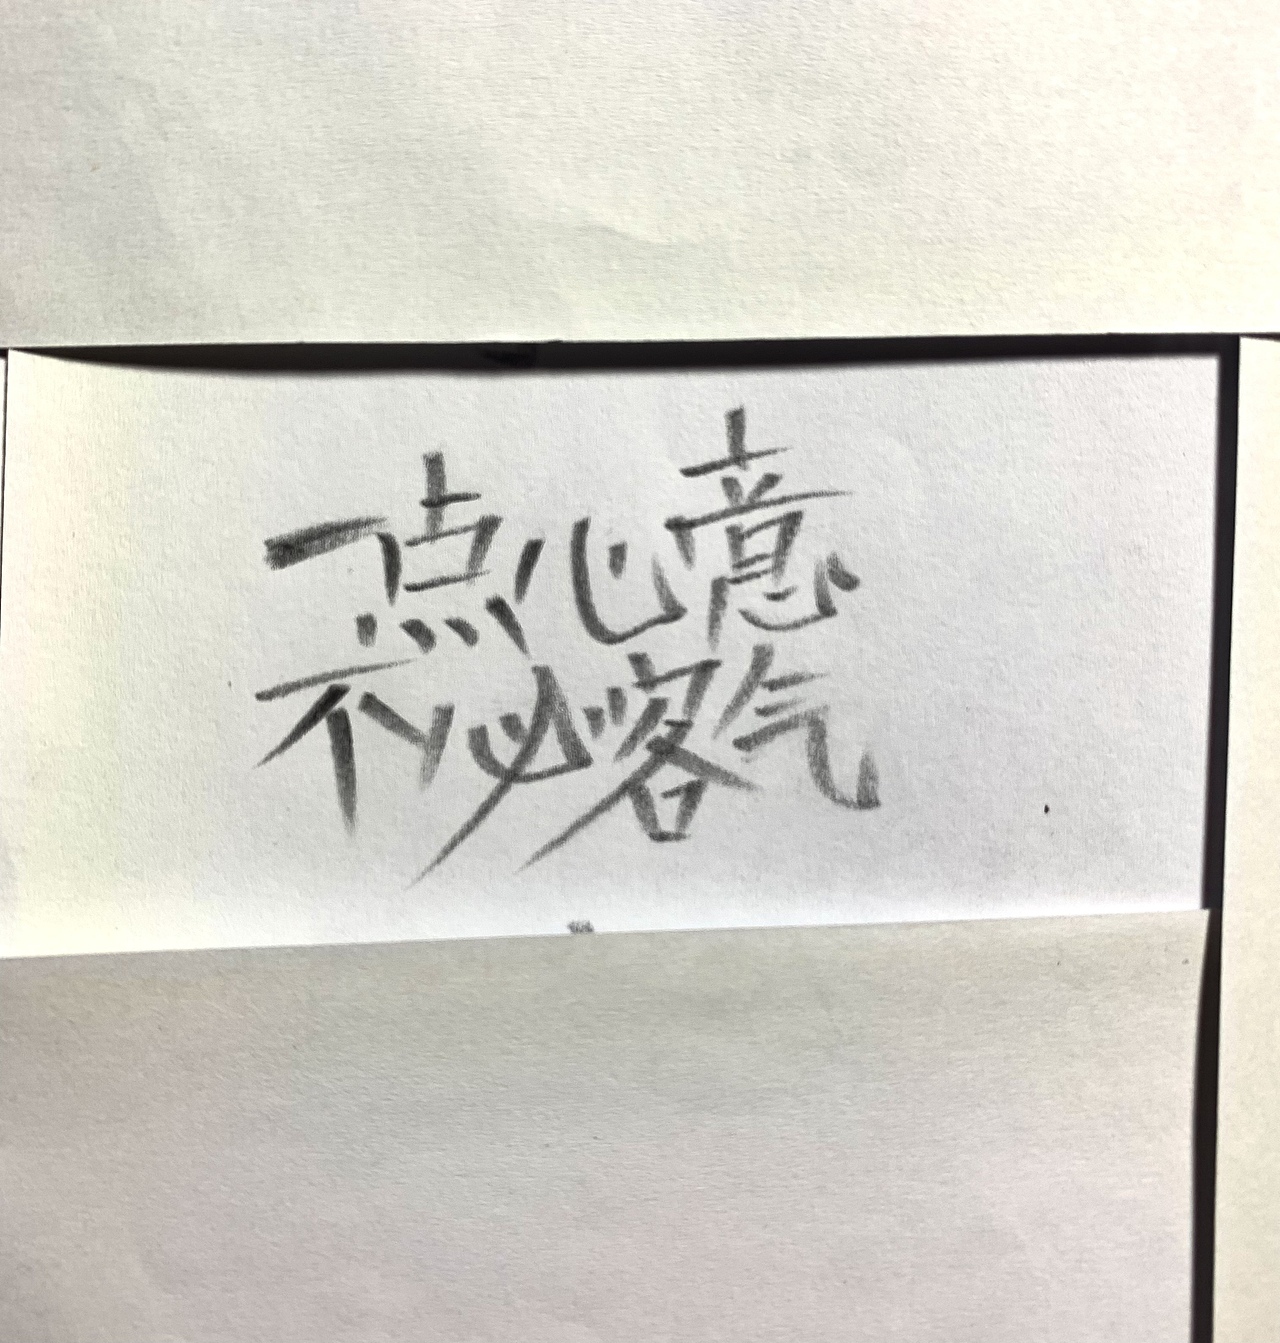 一点心意
不必客气